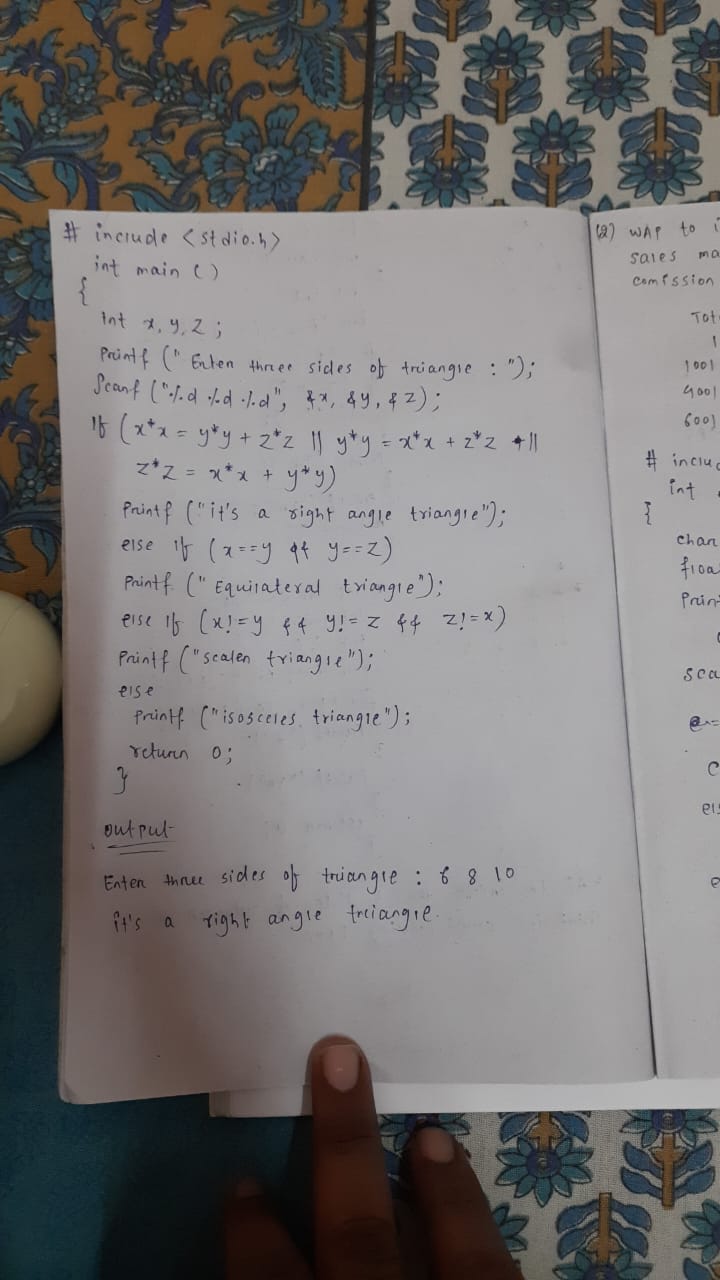 # include <stdio.h>
int main ()
{
int x, y, z ;
Printf (" Enter three sides of triangle : ");
Scanf ("%d %d %d", &x, &y, &z);
If (x*x = y*y + z*z || y*y = x*x + z*z ||
z*z = x*x + y*y)
Printf ("it's a right angle triangle");
else if (x==y && y==z)
Printf (" Equilateral triangle");
else If (x!=y && y!=z && z!=x)
Printf ("scalen triangle");
else
Printf ("isosceles triangle");
return 0;
}
output
Enter three sides of triangle : 6 8 10
it's a right angle triangle.
(2) WAP to i
sales ma
comission
Tot
1
1001
4001
6001
# includ
int
{
char
floa
Prin
sca
c
els
e